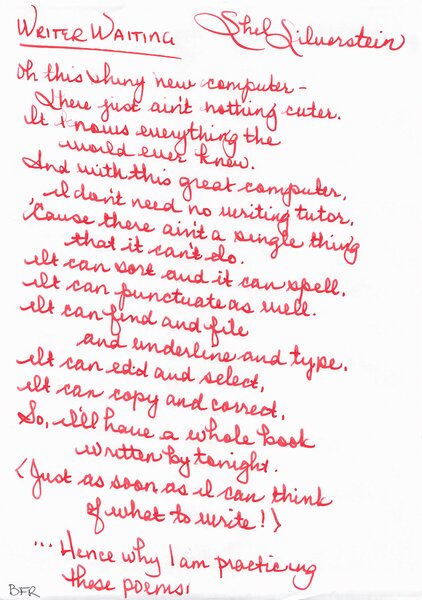 WRITER WAITING Shel Silverstein
Oh this shiny new computer-
There just ain't nothing cuter.
It knows everything the
world ever knew.
And with this great computer,
I don't need no writing tutor,
'Cause there ain't a single thing
that it can't do.
It can sort and it can spell,
It can punctuate as well.
It can find and file
and underline and type.
It can edd and select,
It can copy and correct,
So, I'll have a whole book
written by tonight.
(Just as soon as I can think
of what to write!)
... Hence why I am practicing
these poems!
BFR